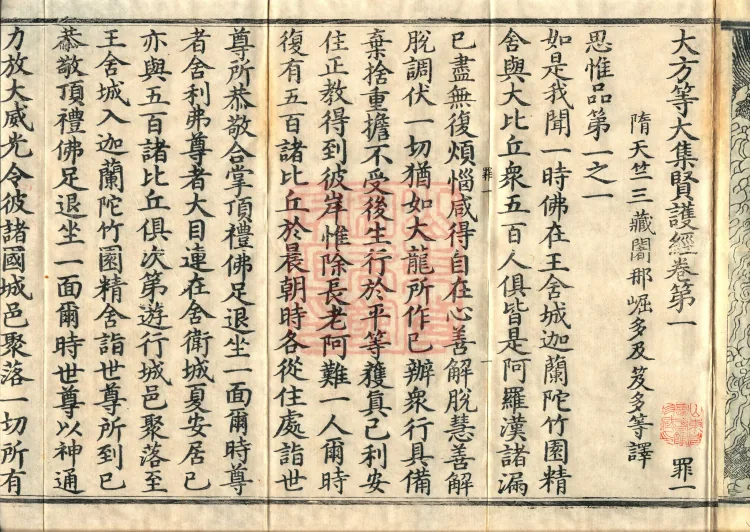 大方等大集賢護經卷第一
罪一
隋天竺三藏闍那崛多及笈多等譯
思惟品第一之一
如是我聞一時佛在王舍城迦蘭陀竹園精
舍與大比丘衆五百人俱皆是阿羅漢諸漏
已盡無復煩惱咸得自在心善解脫慧善解
脫調伏一切猶如大龍所作已辦衆行具備
棄捨重擔不受後生行於平等獲真己利安
住正教得到彼岸惟除長老阿難一人爾時
復有五百諸比丘於晨朝時各從住處詣世
尊所恭敬合掌頂禮佛足退坐一面爾時尊
者舍利弗尊者大目連在舍衛城夏安居已
亦與五百諸比丘俱次第遊行城邑聚落至
王舍城入迦蘭陀竹園精舍詣世尊所到已
恭敬頂禮佛足退坐一面爾時世尊以神通
力放大威光令彼諸國城邑聚落一切所有